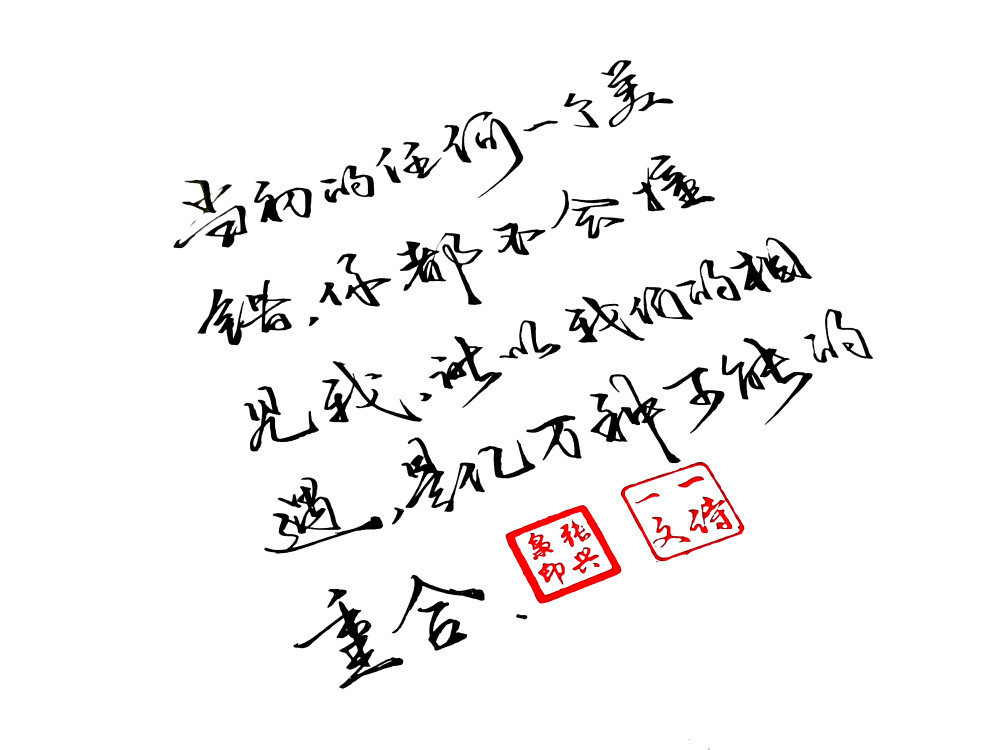 当初的任何一个差
错,你都不会撞
见我,所以我们的相
遇,是亿万种可能的
重合.
一诗
一文
张兴
印